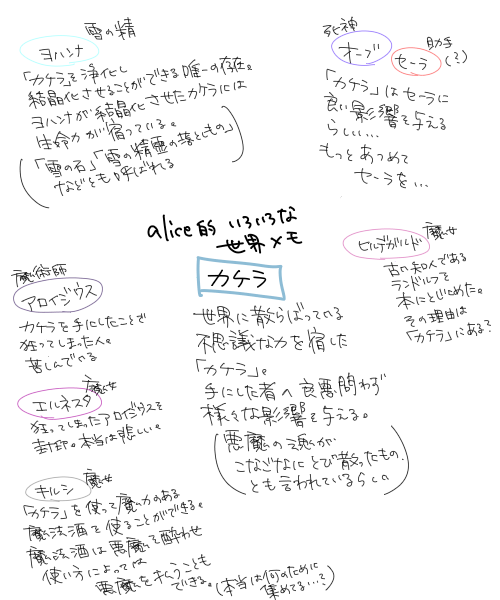 雪の精
ヨハンナ
「カケラ」を浄化し
結晶化させることができる唯一の存在。
ヨハンナが結晶化させたカケラには
生命力が宿っている。
「雪の石」「雪の精霊の落としもの」
などとも呼ばれる
死神
オーブ
助手
セーラ(?)
「カケラ」はセーラに
良い影響を与える
らしい…
もっとあつめて
セーラを…
alice的 いろいろな
世界メモ
カケラ
世界に散らばっている
不思議な力を宿した
「カケラ」。
手にした者へ良悪問わず
様々な影響を与える。
悪魔の魂が
こなごなにとび散ったもの、
とも言われているらしい
魔女
ヒルデガルド
古い知人である
ランドルフを
本にとじこめた。
その理由は
「カケラ」にある?
魔術師
アロイジウス
カケラを手にしたことで
狂ってしまった。
苦しんでいる
魔女
エルネスタ
狂ってしまったアロイジウスを
封印。本当は悲しい。
魔女
キルシ
「カケラ」を使って魔力のある
魔法酒を使ることができる。
魔法酒は悪魔を酔わせ
使い方によっては
悪魔を払うことも
できる。(本当は何のために
集めてる…?)